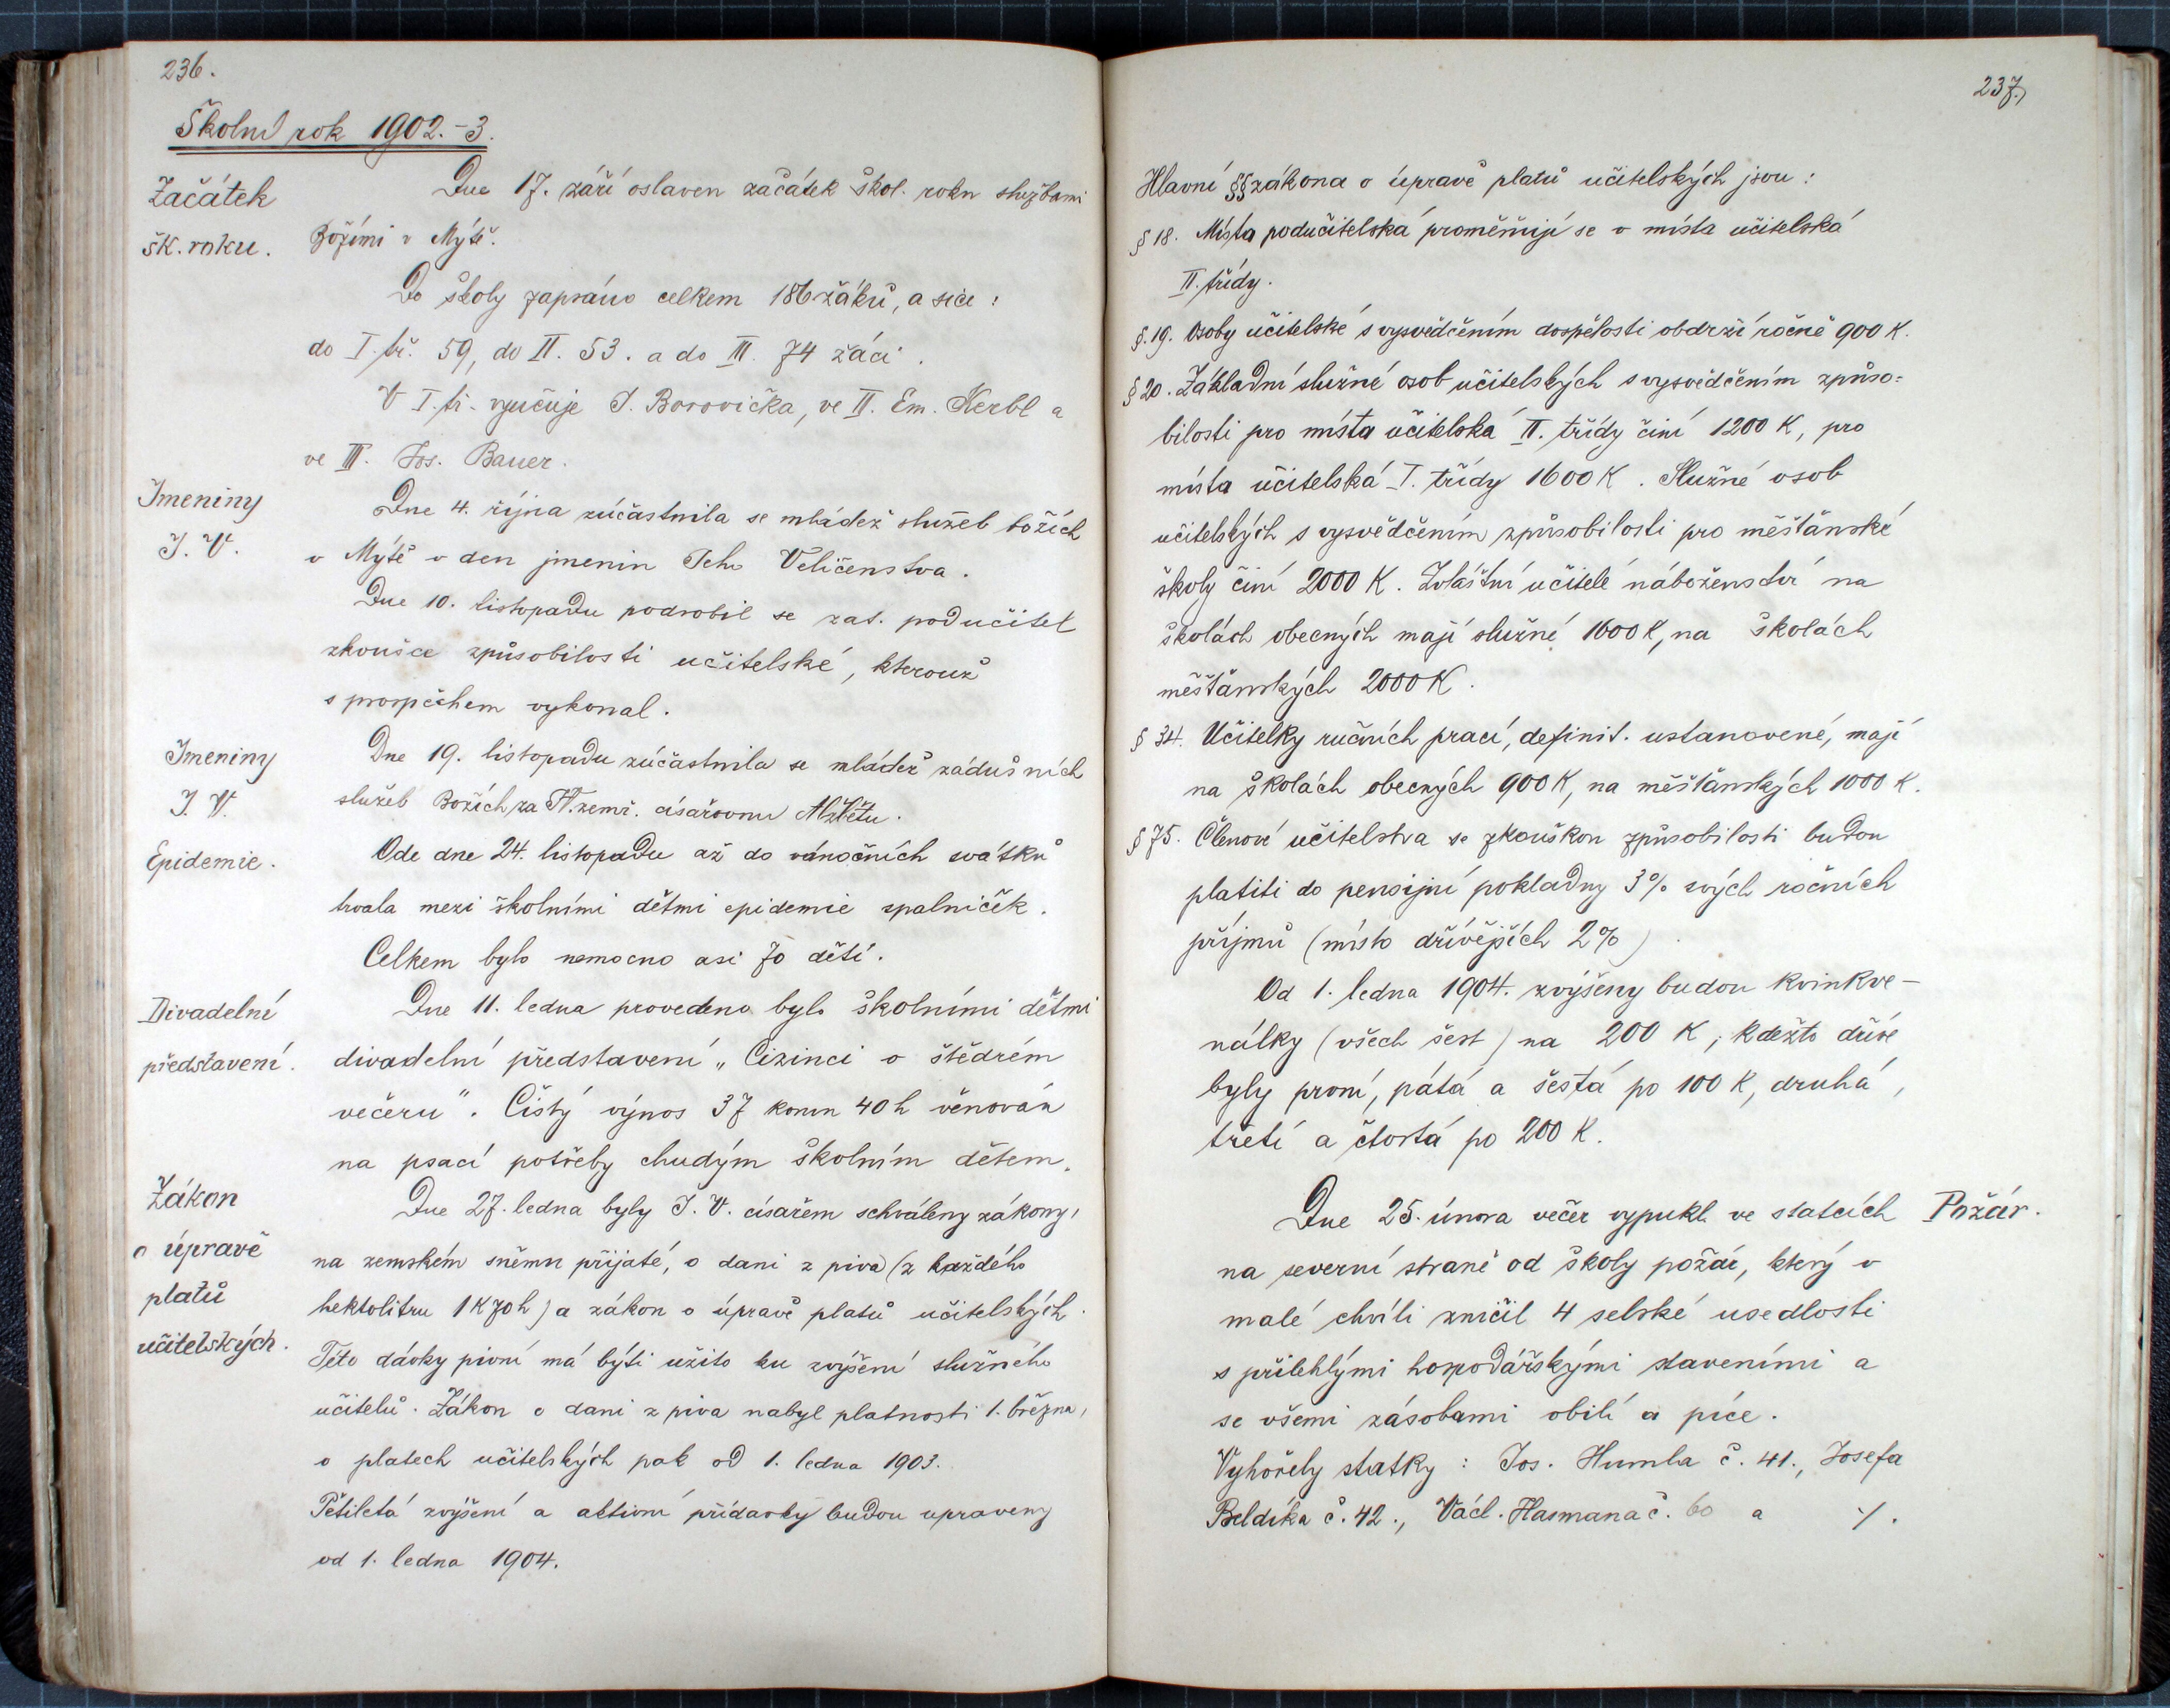 236.
Školní rok 1902.-3.
Začátek
šk. roku.
Dne 17. září oslaven začátek škol. roku službami
Božími v Mýtě.
Do školy zapsáno celkem 186 žáků, a sice:
do I. tř. 59, do II. 53. a do III. 74 žáci.
V I. tř. vyučuje J. Borovička, ve II. Em. Kerbl a
ve III. Jos. Bauer.
Jmeniny
J. V.
Dne 4. října zúčastnila se mládež služeb božích
v Mýtě v den jmenin Jeho Veličenstva.
Dne 10. listopadu podrobil se zat. podučitel
zkoušce způsobilosti učitelské, kterouž
s prospěchem vykonal.
Jmeniny
J. V.
Dne 19. listopadu zúčastnila se mládež zádušních
služeb Božích za zemř. císařovnu Alžbětu.
Epidemie.
Ode dne 24. listopadu až do vánočních svátků
trvala mezi školními dětmi epidemie spalniček.
Celkem bylo nemocno asi 70 dětí.
Divadelní
představení.
Dne 11. ledna provedeno bylo školními dětmi
divadelní představení „Cizinci o štědrém
večeru". Čistý výnos 37 korun 40 h věnován
na psací potřeby chudým školním dětem.
Zákon
o úpravě
platů
učitelských.
Dne 27. ledna byly J. V. císařem schváleny zákony,
na zemském sněmu přijaté, o dani z piva (z každého
hektolitru 1 K 70 h) a zákon o úpravě platů učitelských.
Této dávky pivní má býti užito ku zvýšení služného
učitelů. Zákon o dani z piva nabyl platnosti 1. března,
o platech učitelských pak od 1. ledna 1903.
Pětiletá zvýšení a aktivní přídavky budou upraveny
od 1. ledna 1904.
237.
Hlavní §§ zákona o úpravě platů učitelských jsou:
§ 18. Místa podučitelská proměňují se v místa učitelská
II. třídy.
§. 19. Osoby učitelské s vysvědčením dospělosti obdrží ročně 900 K.
§ 20. Základní služné osob učitelských s vysvědčením způso-
bilosti pro místa učitelská II. třídy činí 1200 K, pro
místa učitelská I. třídy 1600 K. Služné osob
učitelských s vysvědčením způsobilosti pro měšťanské
školy činí 2000 K. Zvláštní učitelé náboženství na
školách obecných mají služné 1600 K, na školách
měšťanských 2000 K.
§ 34. Učitelky ručních prací, definit. ustanovené, mají
na školách obecných 900 K, na měšťanských 1000 K.
§ 75. Členové učitelstva se zkouškou způsobilosti budou
platiti do pensijní pokladny 3% svých ročních
příjmů (místo dřívějších 2%).
Od 1. ledna 1904. zvýšeny budou kvinkve-
nálky (všech šest) na 200 K, kdežto dříve
byly první, pátá a šestá po 100 K, druhá,
třetí a čtvrtá po 200 K.
Požár.
Dne 25. února večer vypukl ve statcích
na severní straně od školy požár, který v
malé chvíli zničil 4 selské usedlosti
s přilehlými hospodářskými staveními a
se všemi zásobami obilí a píce.
Vyhořely statky: Jos. Humla č. 41., Josefa
Beldíka č. 42., Václ. Hasmana č. 60 a ·/.